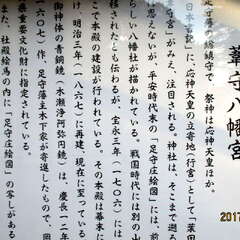 葦守八幡宮
足守庄の総鎮守で、祭神は応神天皇ほか。
日本書紀」に、応神天皇の立寄地(行宮)として「葉田
宮」がみえ、注目される。神社は、そこまで遡
思えないが、平安時代末の「足守庄絵図」には、前
らしい八幡社が描かれている。戦国時代には別の山
移されたとも伝るが、宝永三年(一七〇六)には
こで本殿の建設が行われている。その本殿は幕末に
け、明治三年(一八七〇)に再建、現在に至っている
御神体の青銅鏡(木瀬浄阿弥円鏡)は、慶長一二年
〇七)作、足守藩主木下家が寄進したもので、岡
県重要文化財に指定されている。
また、社殿絵馬の内に「足守庄絵図」の写しがある
2017